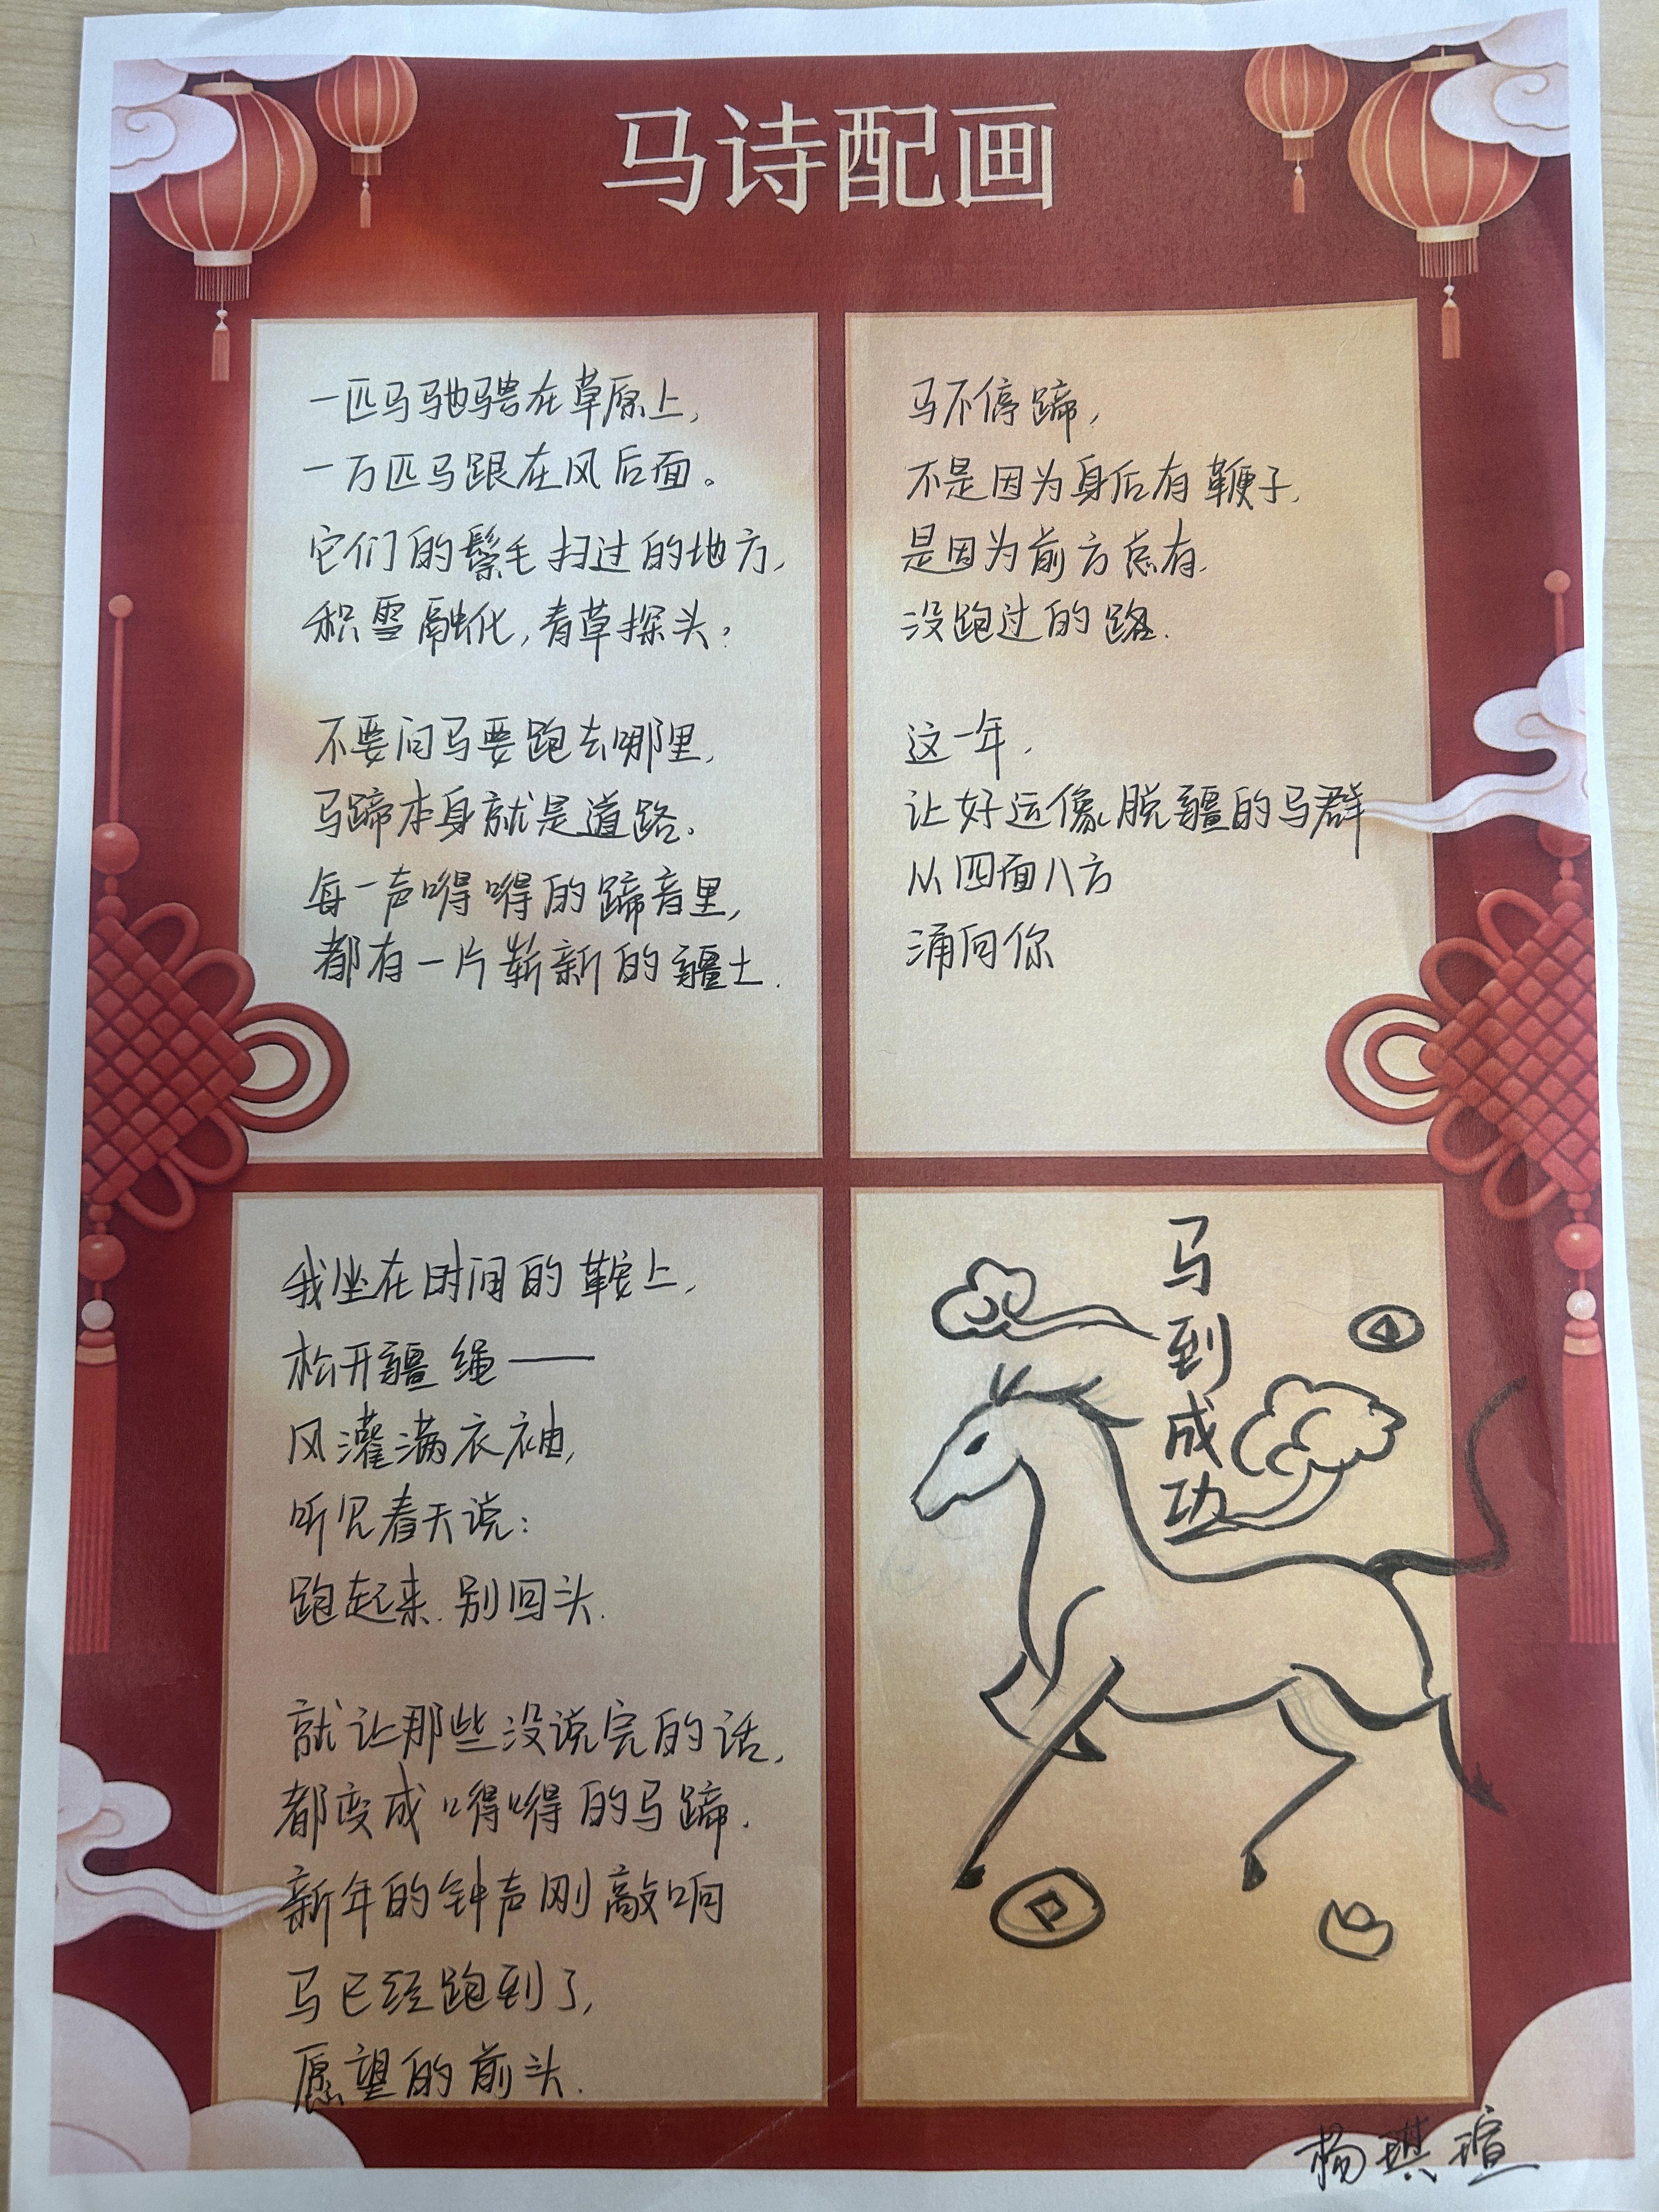 马诗配画
一匹马驰骋在草原上,
一万匹马跟在风后面。
它们的鬃毛扫过的地方,
积雪融化,青草探头。
不要问马要跑去哪里,
马蹄本身就是道路。
每一声嘚嘚的蹄音里,
都有一片崭新的疆土.
马不停蹄,
不是因为身后有鞭子,
是因为前方总有,
没跑过的路.
这一年,
让好运像脱疆的马群
从四面八方
涌向你
我坐在时间的鞍上,
松开疆绳——
风灌满衣袖,
听见春天说:
跑起来.别回头.
就让那些没说完的话,
都变成嘚嘚的马蹄.
新年的钟声刚敲响
马已经跑到了,
愿望的前头.
马到成功
杨琪瑄